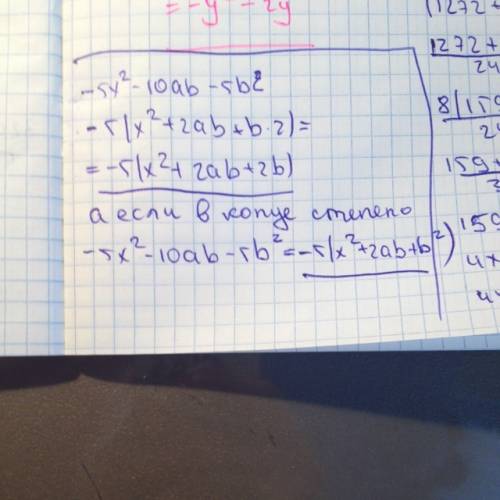 = -y - 2y
-5x² - 10ab - 5b2
-5(x² + 2ab + b·2) =
= -5(x² + 2ab + 2b)
а если в конце степень
-5x² - 10ab - 5b² = -5(x² + 2ab + b²)
(1272 +
1272 +
24
8(159
24
159 +
3
159
4x
4x